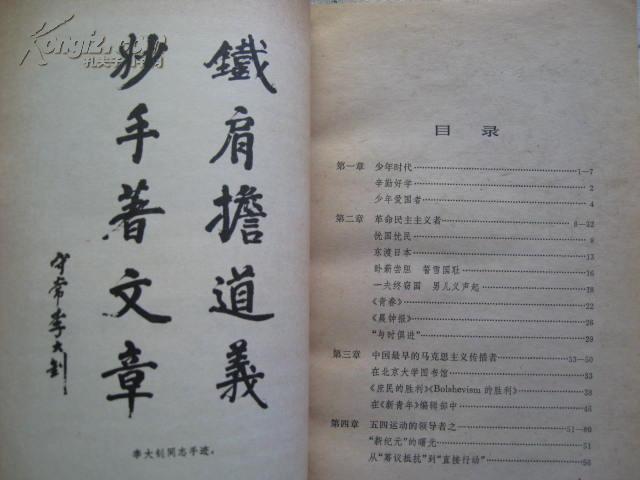 Kongfz.com
鐵肩擔道義
妙手著文章
守常李大釗
李大钊同志手迹。
目录
第一章 少年时代……1—7
辛勤好学……2
少年爱国者……4
第二章 革命民主主义者……8—32
忧国忧民……8
东渡日本……13
卧薪尝胆 誓雪国耻……16
一夫终窃国 男儿义声起……18
《青春》……22
《晨钟报》……26
“与时俱进”……29
第三章 中国最早的马克思主义传播者……33—50
在北京大学图书馆……33
《庶民的胜利》《Bolshevism 的胜利》……38
在《新青年》编辑部中……46
第四章 五四运动的领导者之一……51—80
“新纪元”的曙光……51
从“筹议抵抗”到“直接行动”……56